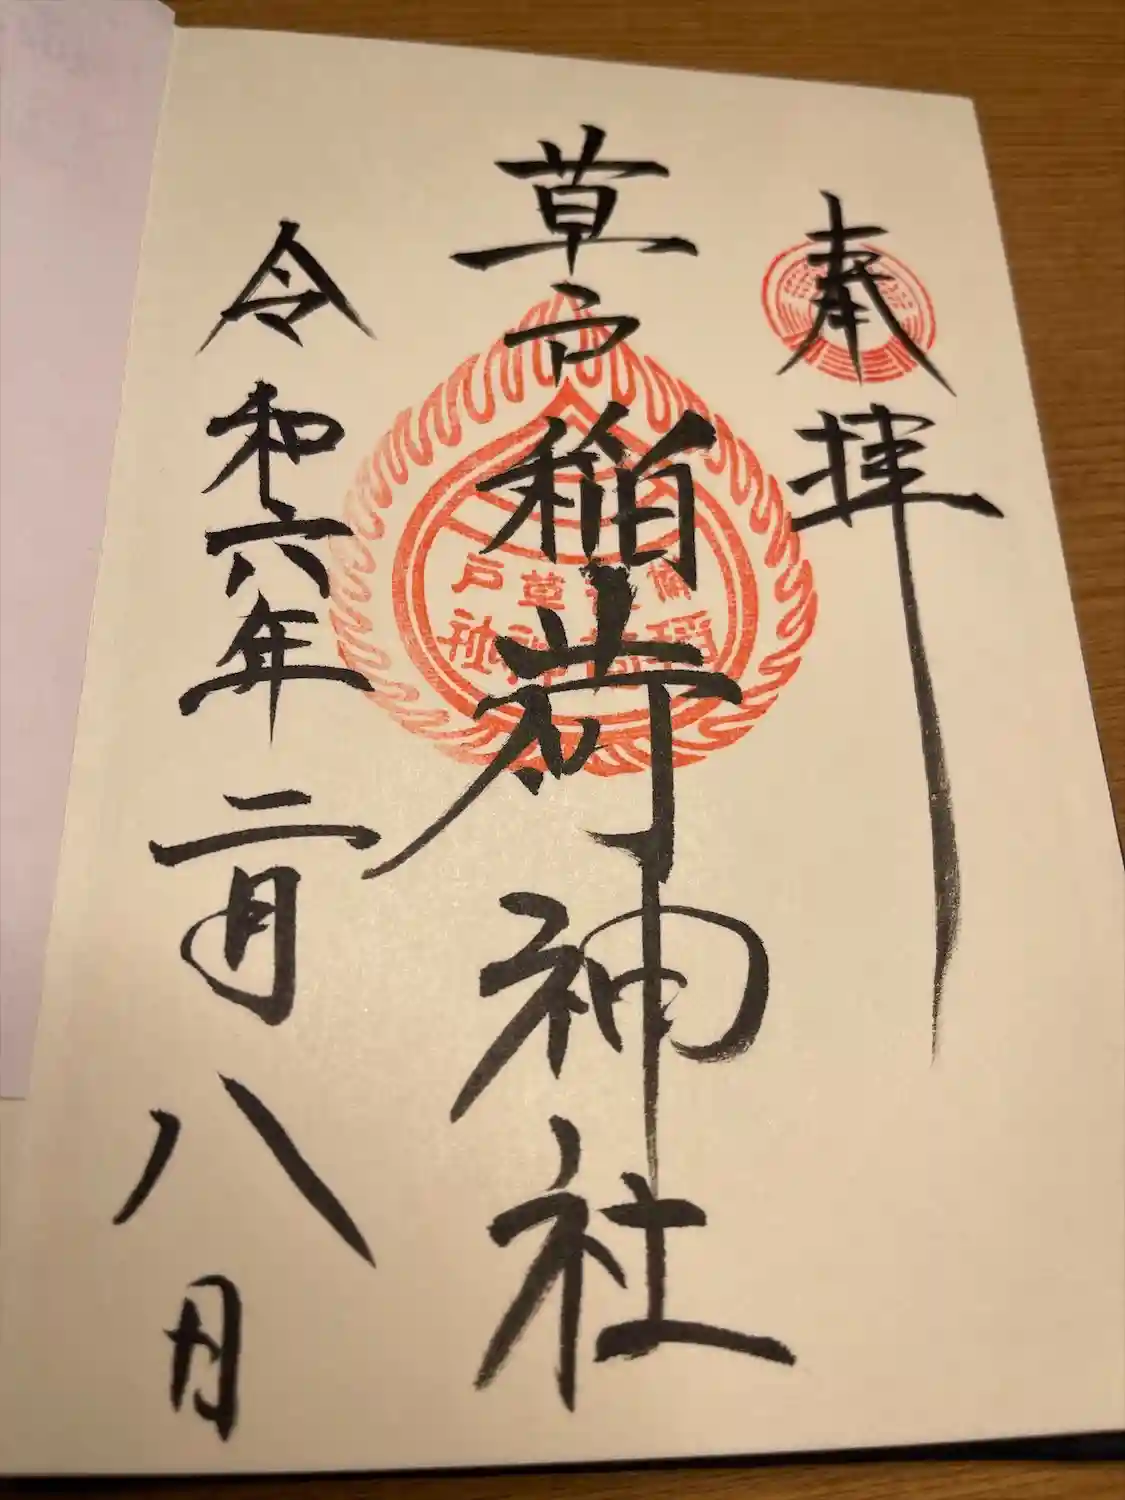 奉拝
草戸稲荷神社
草戸
稲荷神社
令和六年二月八日